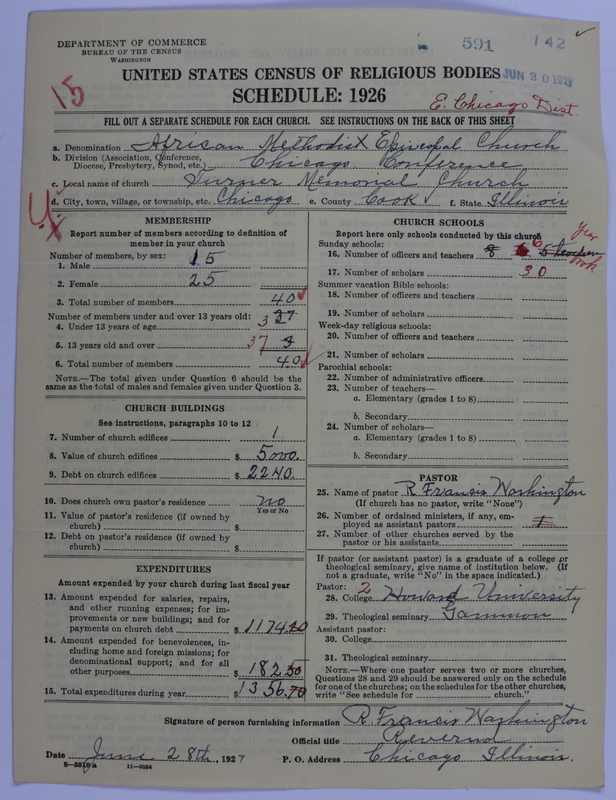 DEPARTMENT OF COMMERCE
BUREAU OF THE CENSUS
WASHINGTON
591
142
UNITED STATES CENSUS OF RELIGIOUS BODIES
JUN 30 192
SCHEDULE: 1926
15
E. Chicago Dist.
FILL OUT A SEPARATE SCHEDULE FOR EACH CHURCH. SEE INSTRUCTIONS ON THE BACK OF THIS SHEET
a. Denomination African Methodist Episcopal Church
b. Division (Association, Conference, Diocese, Presbytery, Synod, etc.) Chicago Conference
c. Local name of church Turner Memorial Church
d. City, town, village, or township, etc. Chicago e. County Cook f. State Illinois
MEMBERSHIP
Report number of members according to definition of
member in your church
Number of members, by sex:
1. Male 15
2. Female 25
3. Total number of members 40
Number of members under and over 13 years old:
4. Under 13 years of age 3 37
5. 13 years old and over 37 3
6. Total number of members 40
NOTE.—The total given under Question 6 should be the
same as the total of males and females given under Question 3.
CHURCH BUILDINGS
See instructions, paragraphs 10 to 12
7. Number of church edifices 1
8. Value of church edifices $ 5000.
9. Debt on church edifices $ 2240.
10. Does church own pastor's residence no
Yes or No
11. Value of pastor's residence (if owned by
church) $
12. Debt on pastor's residence (if owned by
church) $
EXPENDITURES
Amount expended by your church during last fiscal year
13. Amount expended for salaries, repairs,
and other running expenses; for im-
provements or new buildings; and for
payments on church debt $ 1174.20
14. Amount expended for benevolences, in-
cluding home and foreign missions; for
denominational support; and for all
other purposes $ 182.50
15. Total expenditures during year $ 1356.70
CHURCH SCHOOLS
Report here only schools conducted by this church
Sunday schools:
16. Number of officers and teachers 8 6 5 teachers
17. Number of scholars 30
Summer vacation Bible schools:
18. Number of officers and teachers
19. Number of scholars
Week-day religious schools:
20. Number of officers and teachers
21. Number of scholars
Parochial schools:
22. Number of administrative officers
23. Number of teachers—
a. Elementary (grades 1 to 8)
b. Secondary
24. Number of scholars—
a. Elementary (grades 1 to 8)
b. Secondary
PASTOR
25. Name of pastor R Francis Washington
(If church has no pastor, write "None")
26. Number of ordained ministers, if any, em-
ployed as assistant pastors 1
27. Number of other churches served by the
pastor or his assistants
If pastor (or assistant pastor) is a graduate of a college or
theological seminary, give name of institution below. (If
not a graduate, write "No" in the space indicated.)
Pastor: 2
28. College Howard University
29. Theological seminary Gammon
Assistant pastor:
30. College
31. Theological seminary
NOTE.—Where one pastor serves two or more churches,
Questions 28 and 29 should be answered only on the schedule
for one of the churches; on the schedules for the other churches,
write "See schedule for church."
Signature of person furnishing information R. Francis Washington
Official title Reverend
Date June 28th, 1927 P. O. Address Chicago Illinois.
11-9084